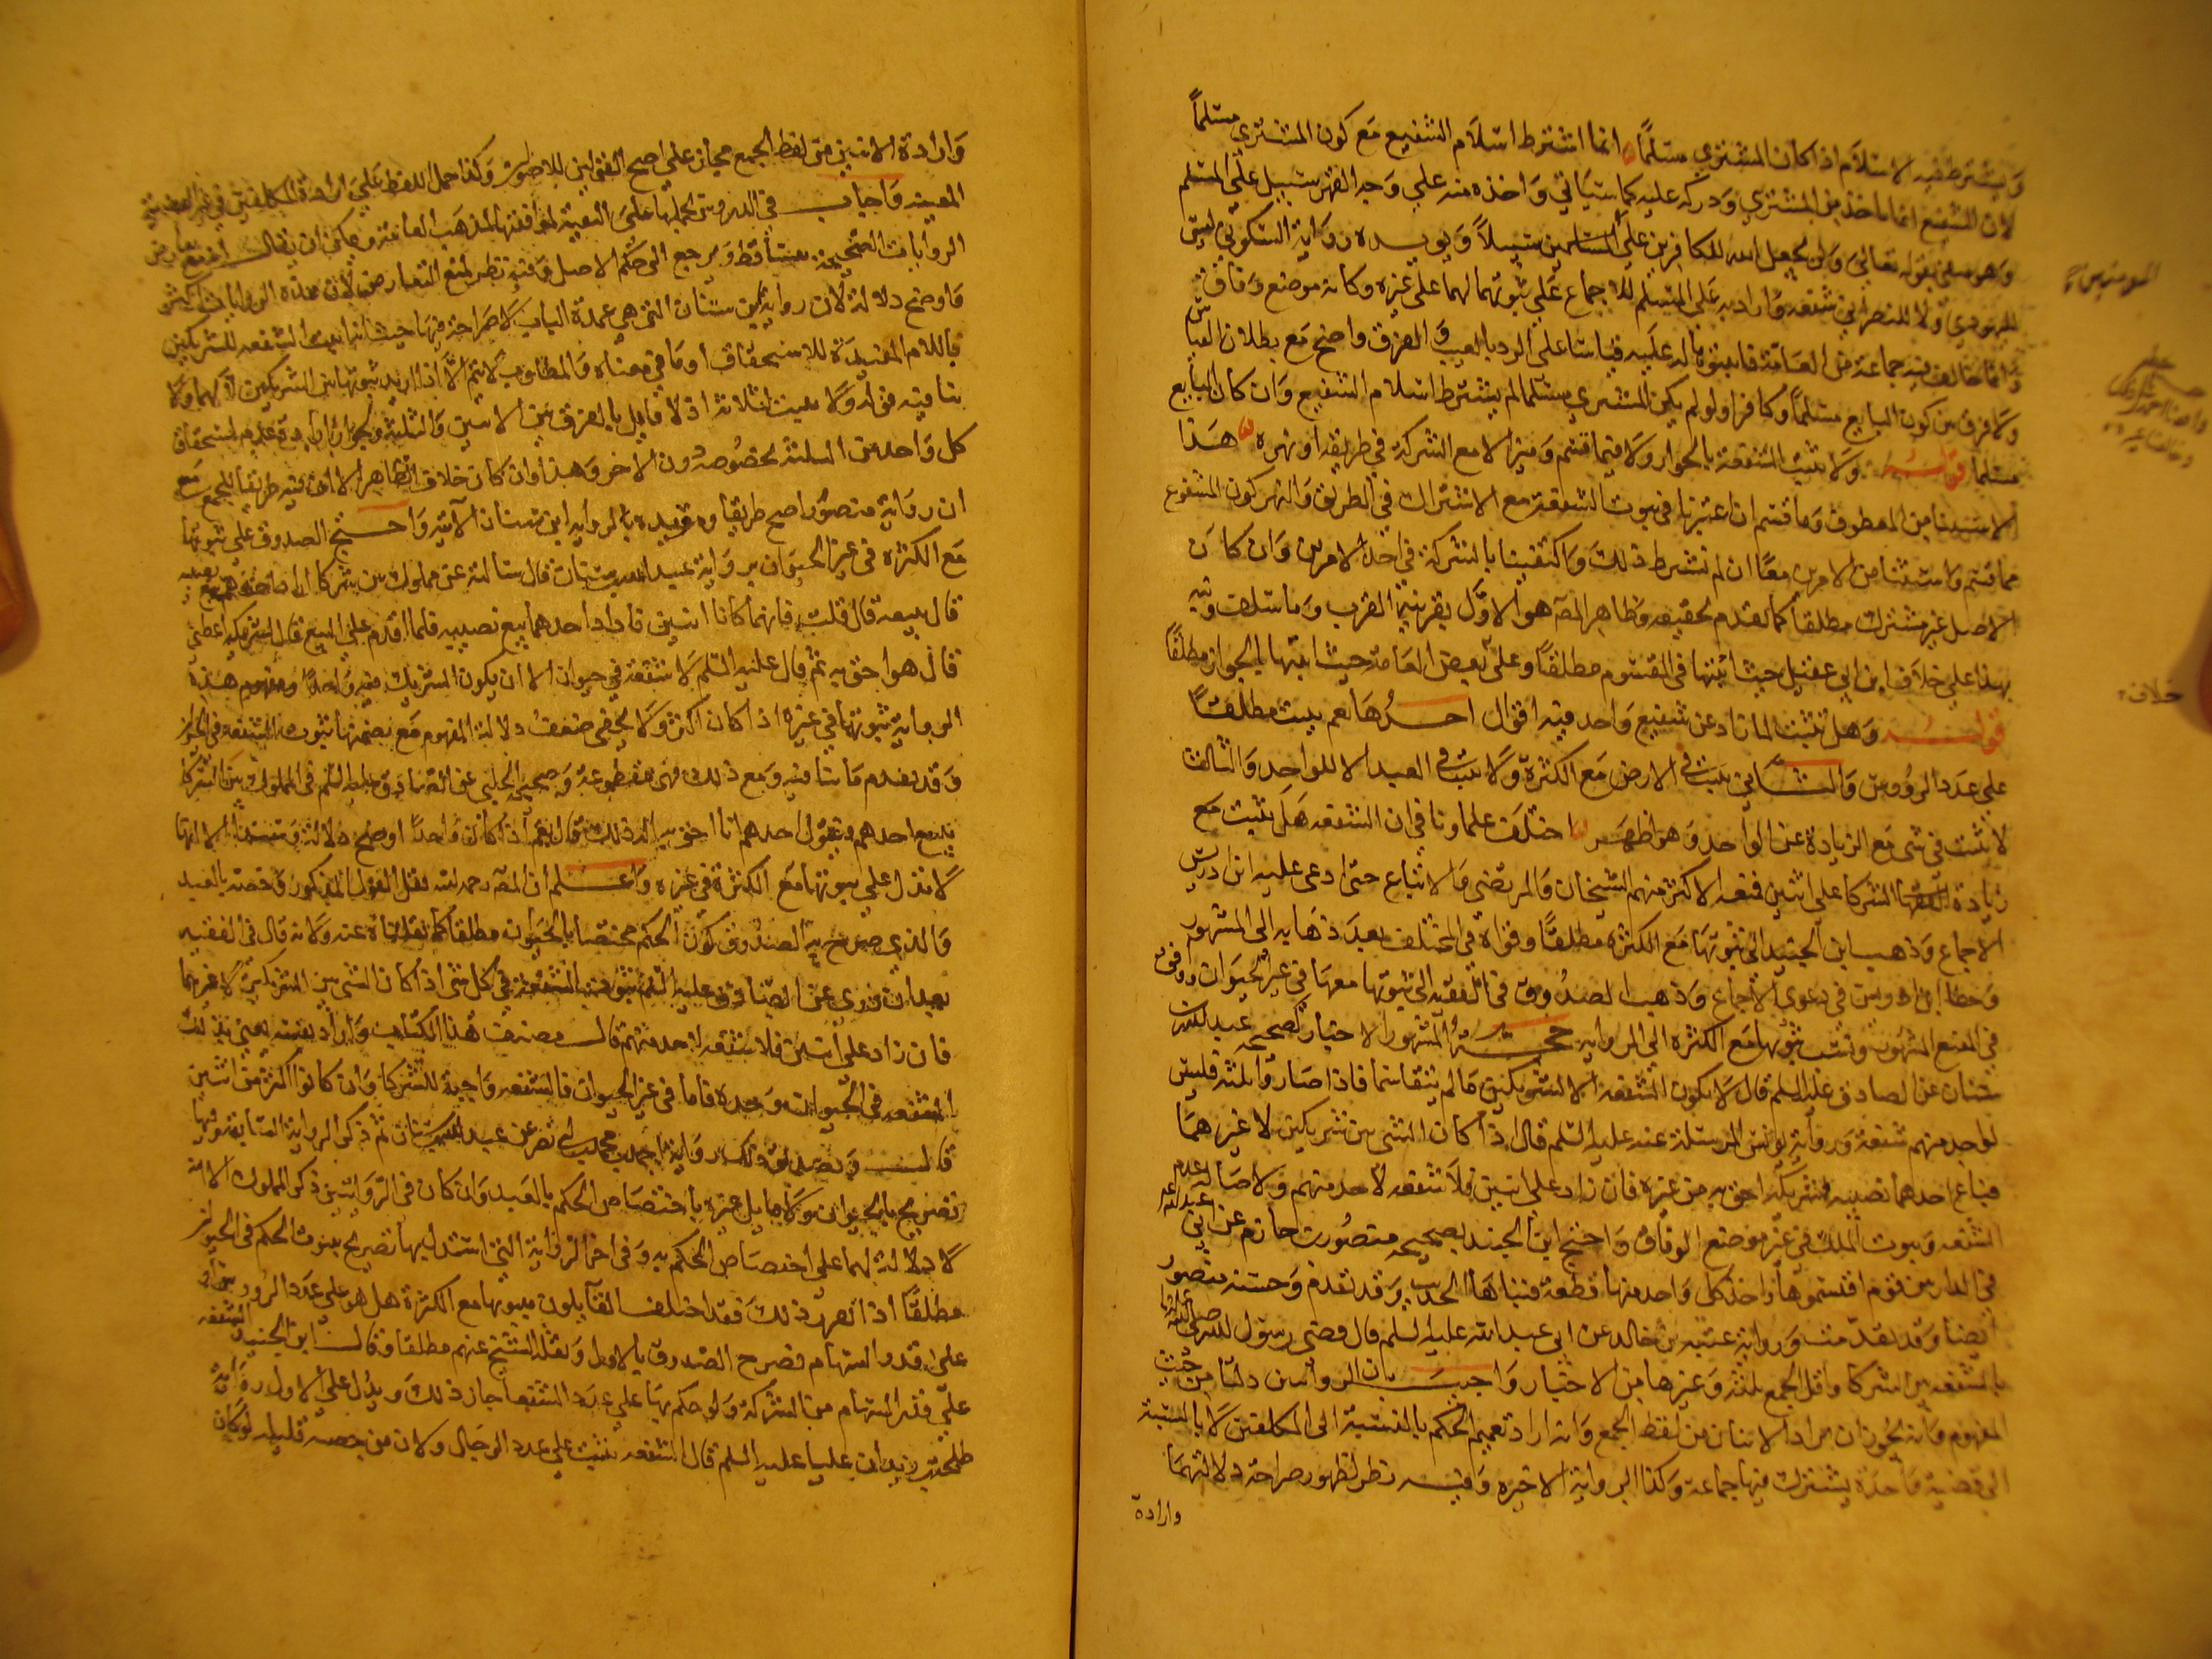 ويشترط فيه الاسلام اذا كان المشتري مسلمًا انما اشترط اسلام الشفيع مع كون المشتري مسلمًا
لان الشفيع انما ياخذ من المشتري ودركه عليه كما سياتي واخذه منه علي وجه القهر سبيل علي المسلم
وهو منفي بقوله تعالي ولن يجعل الله للكافرين علي المسلمين سبيلاً ويويده رواية السكوني ليس
لليهودي ولا للنصراني شفعه واراد به علي المسلم للاجماع علي ثبوتهما لهما علي غيره وكانه موضع وفاق
وانما خالف فيه جماعة من العامة فاثبتوها له عليه قياسا علي الرد بالعيب والفرق واضح مع بطلان القياس
ولا فرق بين كون البايع مسلمًا وكافرا ولو لم يكن المشتري مسلما لم يشترط اسلام الشفيع وان كان البايع
مسلما قوله ولا تثبت الشفعة بالجوار ولا فيما قسم وميز الا مع الشركة في طريقه او نهره هذا
الاستثنا من المعطوف وما قسم ان اعتبرنا في ثبوت الشفعة مع الاشتراك في الطريق والنهر كون المشفوع
مما قسم واستثنا من الامرين معًا ان لم نشترط ذلك واكتفينا بالشركة في احد الامرين وان كان
الاصل غير مشترك مطلقا كما تقدم تحقيقه وظاهر المصَ هو الاول بقرينة القرب وما سلف ونبه
بهذا علي خلاف ابن ابي عقيل حيث اثبتها في المقسوم مطلقا وعلي بعض العامة حيث اثبتها بالجوار مطلقًا
قوله وهل تثبت لما زاد عن شفيع واحد فيه اقوال احدُها نعم يثبت مطلقًا
علي عدد الرؤوس والثاني يثبت في الارض مع الكثرة ولا يثبت في العبد الا للواحد والثالث
لا تثبت في شي مع الزيادة عن الواحد وهو اظهر اختلف علماونا في ان الشفعه هل تثبت مع
زيادة الشركا علي اثنين فمنعه الاكثر منهم الشيخان والمرتضي والاتباع حتي ادعي عليه ابن ادريس
الاجماع وذهب ابن الجنيد الي ثبوتها مع الكثره مطلقًا وقواه في المختلف بعد ذهابه الي المشهور
وخطا ابن ادريس في دعوي الاجماع وذهب الصدُوق في الفقيه الي ثبوتها معها في غير الحيوان ووافق
في المقنع المشهور ونسب ثبوتها مع الكثره الي الرواية حجة المشهور الاخبار كصحيحه عبد الله بن
سنان عن الصادق عليه السلم قال لا يكون الشفعه الا لشريكين ما لم يتقاسما فاذا صاروا ثلثه فليس
لواحد منهم شفعة ورواية يونس المرسلة عنه عليه السلم قال اذا كان الشي بين شريكين لا غيرهما
فباع احدهما نصيبه فشريكه احق به من غيره فان زاد علي اثنين فلا شفعه لاحد منهم ولاصالة عدم
الشفعه وثبوت الملك في غير موضع الوفاق واحتج ابن الجنيد بصحيحه منصُور بن حازم عن ابي عبد الله
في الدار بين قوم اقتسموها واخذ كل واحد منها قطعة فبناها الحديث وقد تقدم وحسنة منصور
ايضا وقد تقدمت ورواية عقبه بن خالد عن ابي عبد الله عليه السلم قال قضي رسول الله صلي الله عليه
بالشفعه بين الشركا واقل الجمع ثلثه وغيرها من الاخبار واجيب بان الروايتين دلتا من حيث
المفهوم وانه يجوز ان يراد الاثنان من لفظ الجمع وانه اراد تعميم الحكم بالنسبة الي المكلفين لا بالنسبة
الي قضية واحدة يشترك فيها جماعة وكذا الرواية الاخيره وفيه نظر لظهور صراحة دلالتهما
وارادة
المومنين سبيلا
خلاف
وارادة الاثنين من لفظ الجمع مجاز علي اصح القولين للاصُوليين وكذا حمل اللفظ علي ارادة المكلفين في غير القضية
المعينه واجاب في الدروس بحملها علي التقية لموافقتها لمذهب العامة ويمكن ان يقال انه مع تعارض
الروايات الصحيحة يتساقط ويرجع الي حكم الاصل وفيه نظر لمنع التعارض لان هذه الروايات اكثر
واوضح دلالة لان رواية ابن سنان التي هي عمدة الباب لا صراحة فيها حيث انه اثبت الشفعه للشريكين
باللام المفيدة للاستحقاق او ما في معناه والمطلوب لا يتم الا اذا اريد ثبوتها بين الشريكين لا لهما ولا
ينافيه قوله ولا يثبت لثلاثة اذ لا قايل بالفرق بين الاثنين والثلثة ويجوز ارادة عدم استحقاق
كل واحد من الثلثة بخصُوصه دون الاخر وهذا وان كان خلاف الظاهر الا ان فيه طريقا للجمع مع
ان رواية منصُور اصح طريقا وموَيده بالرواية ابن سنان الآتيه واحتج الصدوق علي ثبوتها
مع الكثره في غير الحيوان برواية عبد الله بن سنان قال سالته عن مملوك بين شركا اراد احدهم بيع نصيبه
قال يبيعه قال قلت فانهما كانا اثنين فاراد احدهما بيع نصيبه فلما اقدم علي البيع قال له شريكه اعطني
قال هو احق به ثم قال عليه السلم لا شفعة في حيوان الا ان يكون الشريك فيه واحدًا ومفهوم هذه
الرواية ثبوتها في غيره اذا كان اكثر ولا يخفي ضعف دلالة المفهوم مع تضمنها ثبوت الشفعه في الحيوان
وقد تقدم ما ينافيه ومع ذلك فهي مقطوعة وصحيح الحلبي عن الصادق عليه السلم في المملوك بين الشركا
يبيع احدهم ويقول احدهم انا احق به اله ذلك قال نعم اذا كان واحدًا اوضح دلالة وسندًا الا انها
لا تدل علي ثبوتها مع الكثرة في غيره واعلم ان المصَ رحمه الله نقل القول المذكور وخصه بالعبد
والذي صرح به الصدُوق كون الحكم مختصا بالحيوان مطلقا كما نقلناه عنه ولانه قال في الفقيه
بعد ان روي عن الصادق عليه السلم ثبوت الشفعة في كل شي اذا كان الشي بين الشريكين لا غيرهما
فان زاد علي اثنين فلا شفعه لاحد منهم قال مصنف هذا الكتاب واراد نفسه يعني بذلك
الشفعه في الحيوان وحده فاما في غير الحيوان فالشفعه واجبة للشركا وان كانوا اكثر من اثنين
قال وتصديق ذلك رواية احمد بن محمد بن ابي نصر عن عبد الله بن سنان ثم ذكر الرواية السابقة وفيها
تصريح بالحيوان ولا قايل غيره باختصاص الحكم بالعبد وان كان في الروايتين ذكر المملوك الا انه
لا دلالة لهما علي اختصاص الحكم به وفي اخر الرواية التي استند اليها تصريح بثبوت الحكم في الحيوان
مطلقًا اذا تقرر ذلك فقد اختلف القايلون بثبوتها مع الكثرة هل هو علي عدد الرووس او
علي قدر السهام فصرح الصدوق بالاول ونقله الشيخ عنهم مطلقا وقال ابن الجنيد الشفعه
علي قدر السهام من الشركة ولو حكم بها علي عدد الشفعا جاز ذلك ويدل علي الاول رواية
طلحة بن زيد ان عليا عليه السلم قال الشفعه تثبت علي عدد الرجال ولان من حصته قليله لو كان